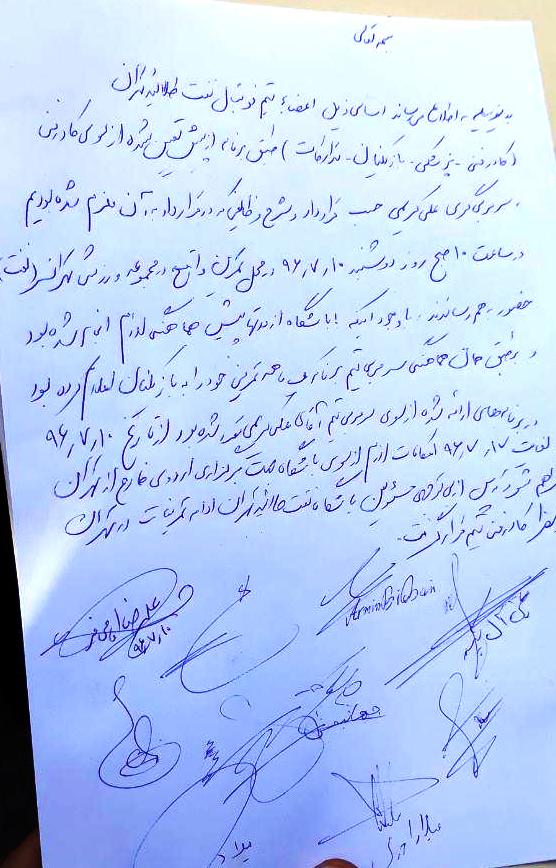 بسمه تعالی
بدینوسیله به اطلاع می رساند اسامی ذیل اعضاء تیم فوتبال نفت طلائیه تهران
(کادر فنی - پزشکی - بازیکنان - تدارکات) طبق برنامه از پیش تعیین شده از سوی کادر فنی
به سرمربیگری علی کریمی حسب قرارداد و شرح وظایفی که در قرارداد به آن ملزم شده بودیم
در ساعت ۱۰ صبح روز دوشنبه ۹۶،۷،۱۰ در محل تمرین واقع در مجموعه ورزشی تهرانسر (نفت)
حضور به هم رساندند. با وجود اینکه با باشگاه از مدتها پیش هماهنگی لازم انجام شده بود
و طبق همان هماهنگی سرمربی تیم برنامه یک هفته تمرینی خود را به بازیکنان اعلام کرده بود
در برنامه‌های ارائه شده از سوی سرمربی تیم آقای علی کریمی مقرر شده بود از تاریخ ۹۶،۷،۱۰
لغایت ۹۶،۷،۱۷ امکانات لازم از سوی باشگاه جهت برگزاری اردوی خارج از تهران
فراهم شود. پس از بی توجهی مسئولین باشگاه نفت طلائیه تهران ادامه تمرینات در تهران
کادر فنی تیم قرار گرفت.
علیرضا
۹۶،۷،۱۰
Armin
جهانبخش
میلاد